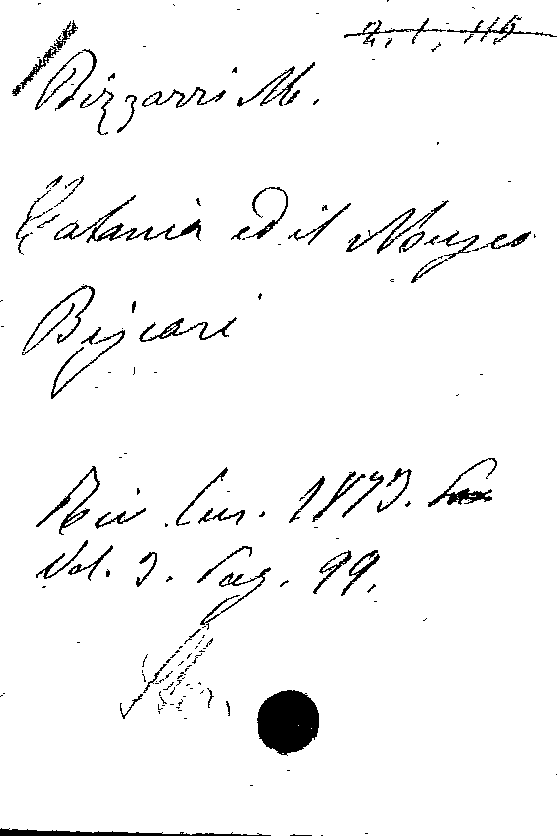 2, 1, 115
Bizzarri M.
Catania ed il Museo
Biscari
Riv. Eur. 1873.
Vol. 3. Pag. 99.